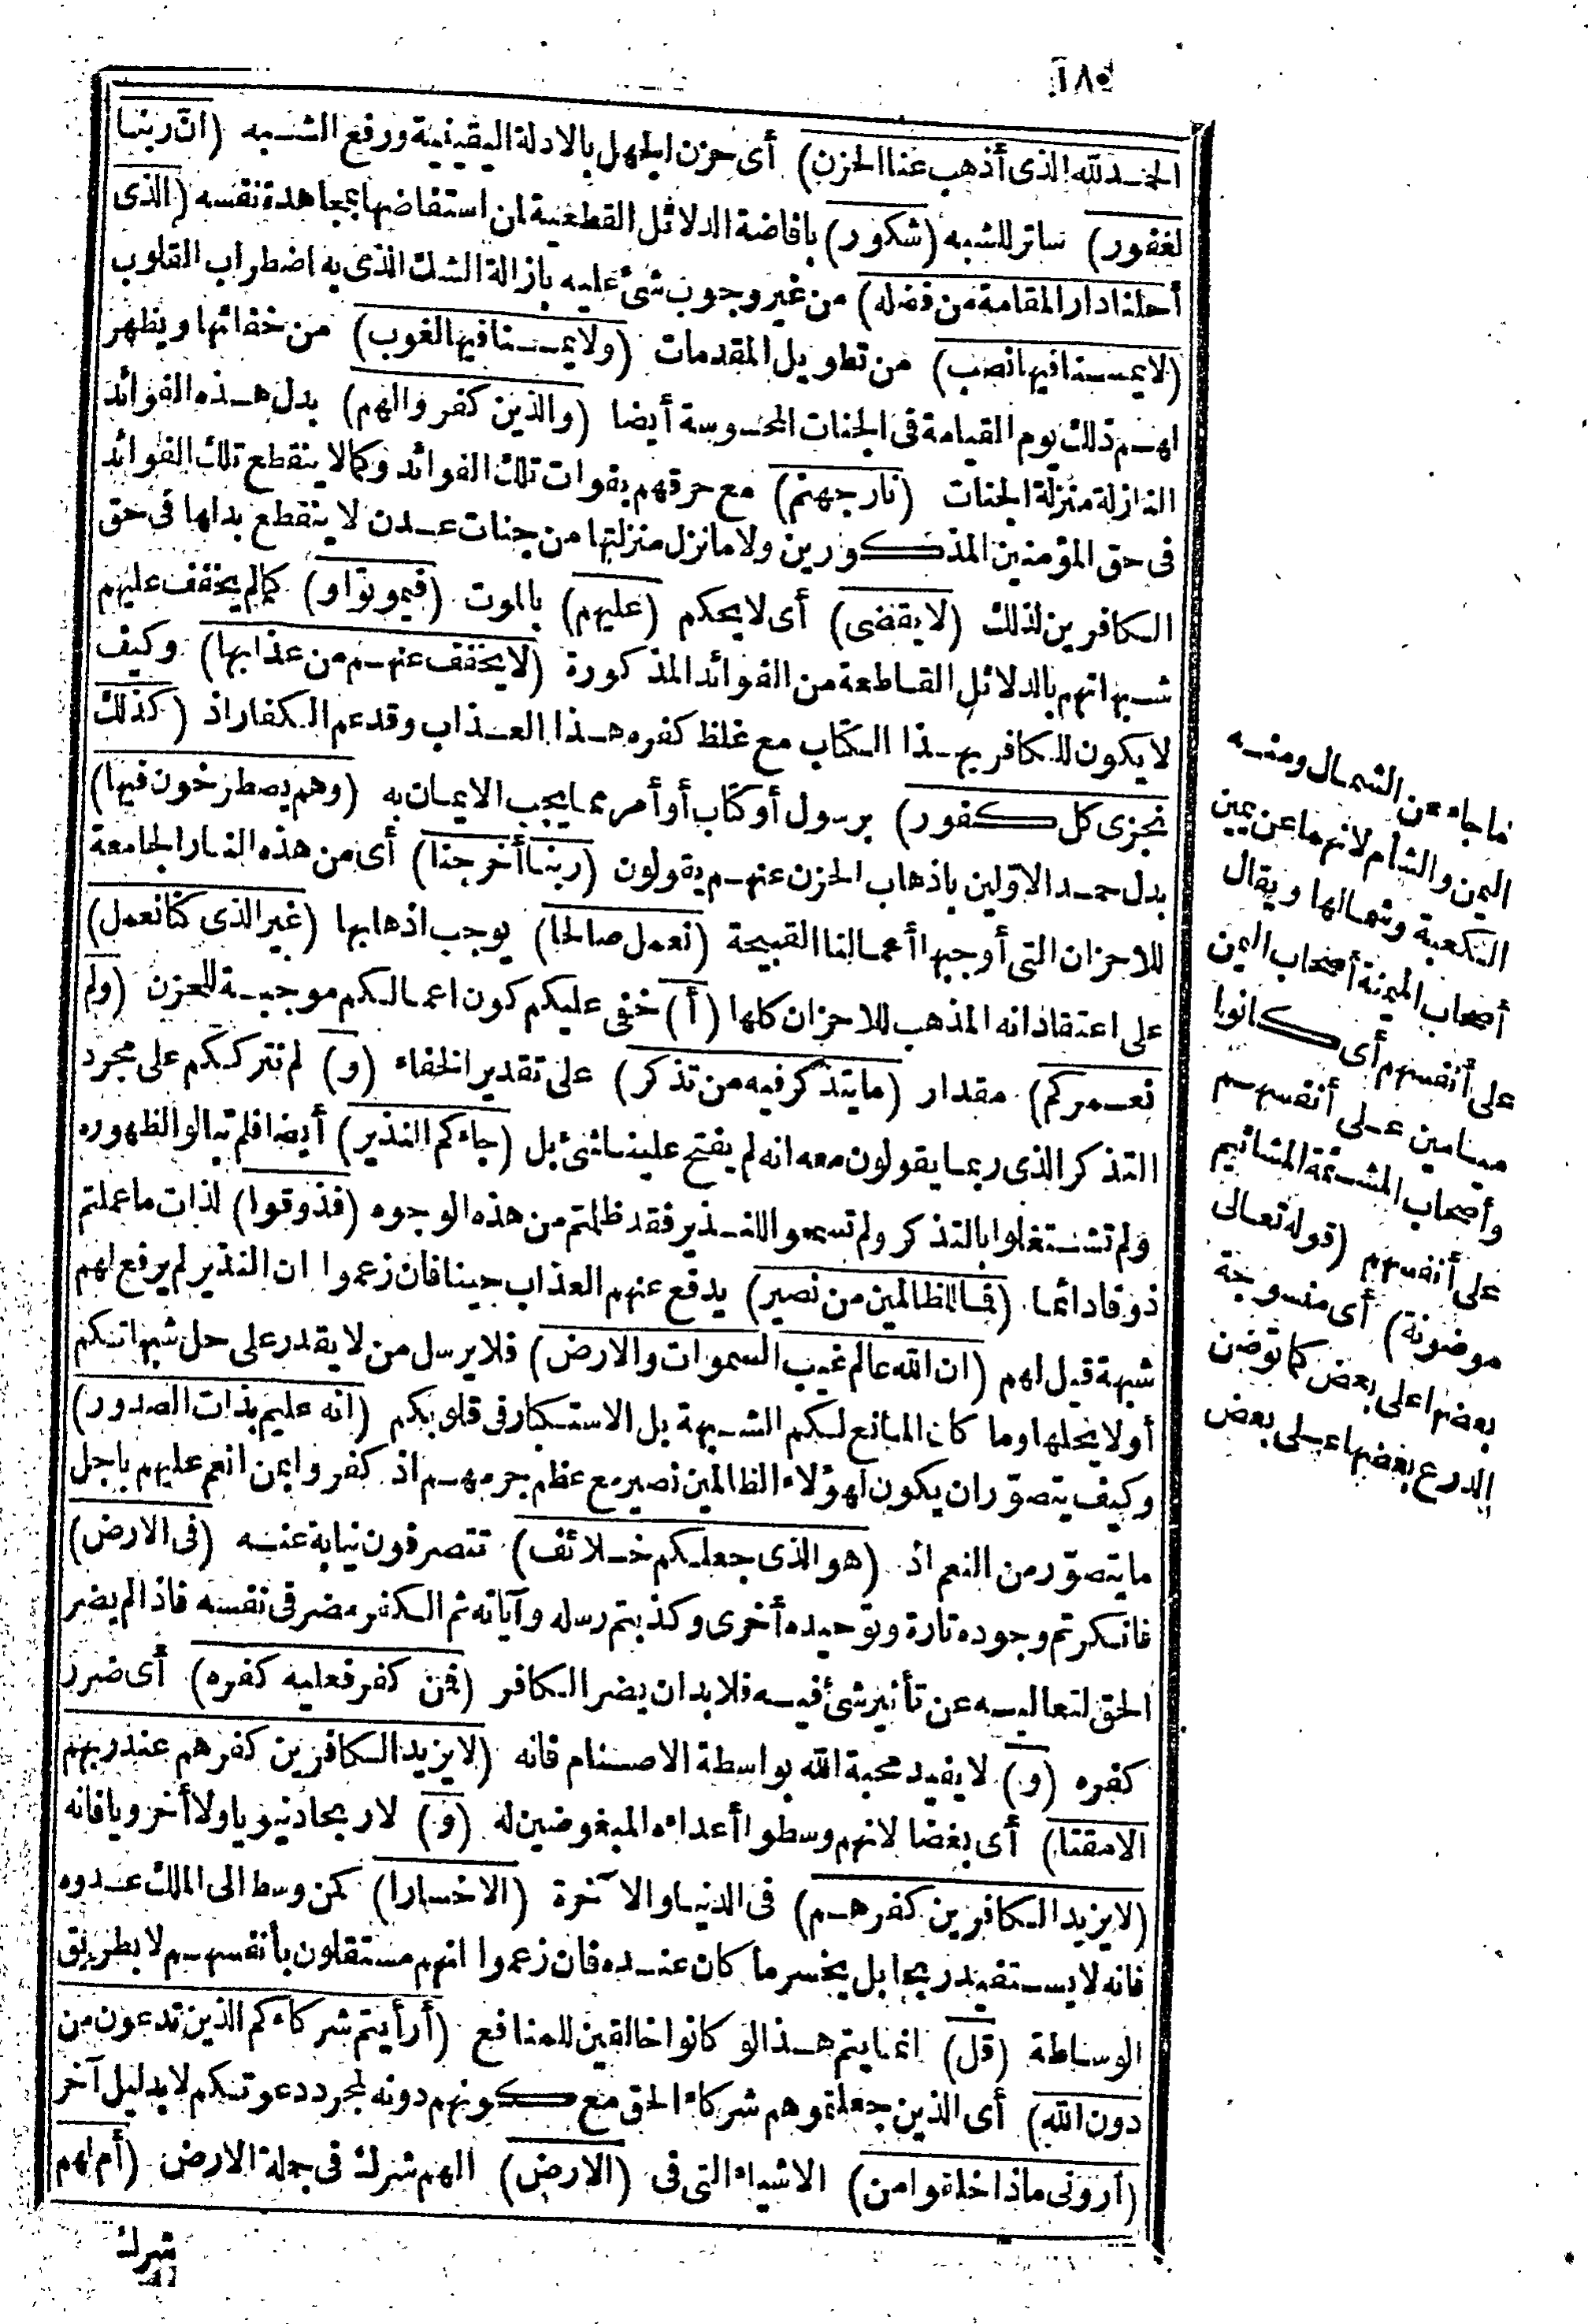 ١٨٥
الحمد لله الذى أذهب عنا الحزن) أى حزن الجهل بالادلة اليقينية ورفع الشبه (ان ربنا
لغفور) ساتر للشبه (شكور) بافاضة الدلائل القطعية لمن استفاضها بمجاهدة نفسه (الذى
أحلنا دار المقامة من فضله) من غير وجوب شئ عليه بازالة الشك الذى به اضطراب القلوب
(لا يمسنا فيها نصب) من تطويل المقدمات (ولا يمسنا فيها لغوب) من خفائها ويظهر
لهم ذلك يوم القيامة فى الجنات المحسوسة أيضا (والذين كفروا لهم) بدل هذه الفوائد
النازلة منزلة الجنات (نار جهنم) مع حرقهم بفوات تلك الفوائد وكما لا ينقطع تلك الفوائد
فى حق المؤمنين المذكورين ولا ما نزل منزلتها من جنات عدن لا ينقطع بدلها فى حق
الكافرين لذلك (لا يقضى) أى لا يحكم (عليهم) بالموت (فيموتوا و) كما لم يخفف عليهم
شبهاتهم بالدلائل القاطعة من الفوائد المذكورة (لا يخفف عنهم من عذابها) وكيف
لا يكون للكافر بهذا الكتاب مع غلظ كفره هذا العذاب وقد عم الكفار اذ (كذلك
نجزى كل كفور) برسول أو كتاب أو أمر مما يجب الايمان به (وهم يصطرخون فيها)
بدل حمد الاولين باذهاب الحزن عنهم يقولون (ربنا أخرجنا) أى من هذه النار الجامعة
للاحزان التى أوجبها أعمالنا القبيحة (نعمل صالحا) يوجب اذهابها (غير الذى كنا نعمل)
على اعتقاد انه المذهب للاحزان كلها (أ) خفى عليكم كون اعمالكم موجبة للحزن (ولم
نعمركم) مقدار (ما يتذكر فيه من تذكر) على تقدير الخفاء (و) لم نترككم على مجرد
التذكر الذى ربما يقولون معه انه لم يفتح علينا شئ بل (جاءكم النذير) أيضا فلم تبالوا لظهوره
ولم تشتغلوا بالتذكر ولم تسمعوا للنذير فقد ظلمتم من هذه الوجوه (فذوقوا) لذات ما عملتم
ذوقا دائما (فما للظالمين من نصير) يدفع عنهم العذاب حينا فان زعموا ان النذير لم يرفع لهم
شبهة قيل لهم (ان الله عالم غيب السموات والارض) فلا يرسل من لا يقدر على حل شبهاتكم
أو لا يحلها وما كان المانع لكم الشبهة بل الاستكبار فى قلوبكم (انه عليم بذات الصدور)
وكيف يتصور ان يكون لهؤلاء الظالمين نصير مع عظم جرمهم اذ كفروا بمن انعم عليهم باجل
ما يتصور من النعم اذ (هو الذى جعلكم خلائف) تتصرفون نيابة عنه (فى الارض)
فانكرتم وجوده تارة وتوحيده أخرى وكذبتم رسله وآياته ثم الكفر مضر فى نفسه فاذا لم يضر
الحق لتعاليه عن تأثير شئ فيه فلا بد ان يضر الكافر (فمن كفر فعليه كفره) أى ضرر
كفره (و) لا يفيد محبة الله بواسطة الاصنام فانه (لا يزيد الكافرين كفرهم عند ربهم
الا مقتا) أى بغضا لانهم وسطوا أعداءه المبغوضين له (و) لا ربحا دنيويا ولا أخرويا فانه
(لا يزيد الكافرين كفرهم) فى الدنيا والآخرة (الا خسارا) كمن وسط الى الملك عدوه
فانه لا يستفيد ربحا بل يخسر ما كان عنده فان زعموا انهم مستقلون بأنفسهم لا بطريق
الوساطة (قل) انما يتم هذا لو كانوا خالقين للمنافع (أرأيتم شركاءكم الذين تدعون من
دون الله) أى الذين جعلتموهم شركاء الحق مع كونهم دونه لمجرد دعوتكم لا بدليل آخر
(أرونى ماذا خلقوا من) الاشياء التى فى (الارض) الهم شرك فى جملة الارض (أم لهم
شرك
ما جاء عن الشمال ومنه
اليمن والشأم لانهما عن يمين
الكعبة وشمالها ويقال
أصحاب الميمنة أصحاب اليمن
على أنفسهم أى كانوا
ميامين على أنفسهم
وأصحاب المشئمة المشائيم
على أنفسهم (قوله تعالى
موضونة) أى منسوجة
بعضها على بعض كما توضن
الدرع بعضها على بعض